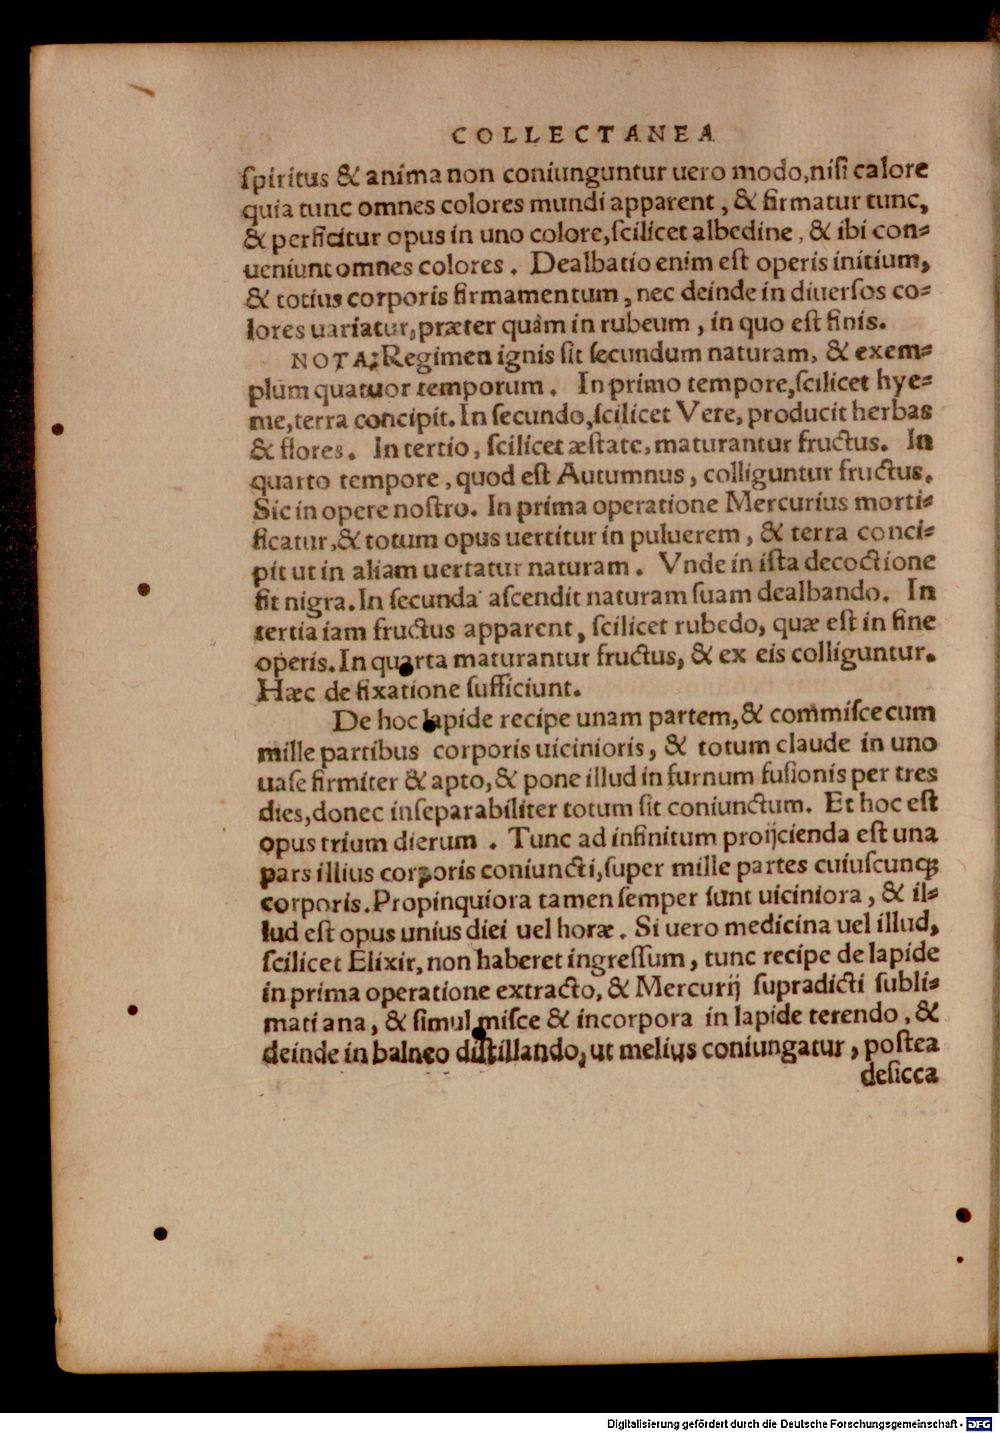 COLLECTANEA
ſpiritus & anima non coniunguntur uero modo, niſi calore
quia tunc omnes colores mundi apparent, & firmatur tunc,
& perficitur opus in uno colore, ſcilicet albedine, & ibi con-
ueniunt omnes colores. Dealbatio enim eſt operis initium,
& totius corporis firmamentum, nec deinde in diuerſos co-
lores uariatur, præter quàm in rubeum, in quo eſt finis.
NOTA: Regimen ignis ſit ſecundum naturam, & exem-
plum quatuor temporum. In primo tempore, ſcilicet hye-
me, terra concipit. In ſecundo, ſcilicet Vere, producit herbas
& flores. In tertio, ſcilicet æſtate, maturantur fructus. In
quarto tempore, quod eſt Autumnus, colliguntur fructus.
Sic in opere noſtro. In prima operatione Mercurius morti-
ficatur, & totum opus uertitur in puluerem, & terra conci-
pit ut in aliam uertatur naturam. Vnde in iſta decoctione
fit nigra. In ſecunda aſcendit naturam ſuam dealbando. In
tertia iam fructus apparent, ſcilicet rubedo, quæ eſt in fine
operis. In quarta maturantur fructus, & ex eis colliguntur.
Hæc de fixatione ſufficiunt.
De hoc lapide recipe unam partem, & commiſce cum
mille partibus corporis uicinioris, & totum claude in uno
uaſe firmiter & apto, & pone illud in furnum fuſionis per tres
dies, donec inſeparabiliter totum ſit coniunctum. Et hoc eſt
opus trium dierum. Tunc ad infinitum proijcienda eſt una
pars illius corporis coniuncti, ſuper mille partes cuiuſcunq;
corporis. Propinquiora tamen ſemper ſunt uiciniora, & il-
lud eſt opus unius diei uel horæ. Si uero medicina uel illud,
ſcilicet Elixir, non haberet ingreſſum, tunc recipe de lapide
in prima operatione extracto, & Mercurij ſupradicti ſubli-
mati ana, & ſimul miſce & incorpora in lapide terendo, &
deinde in balneo diſtillando, ut melius coniungatur, poſtea
deſicca
Digitalisierung gefördert durch die Deutsche Forschungsgemeinschaft - DFG